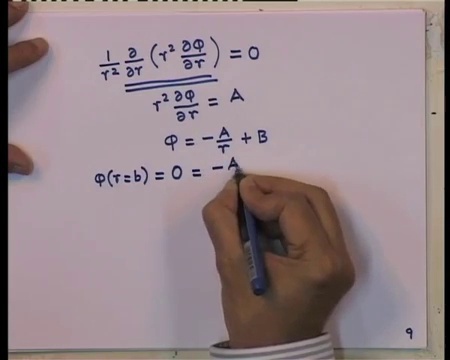 1/r² ∂/∂r (r² ∂φ/∂r) = 0
r² ∂φ/∂r = A
φ = -A/r + B
φ(r=b) = 0 = -A
9